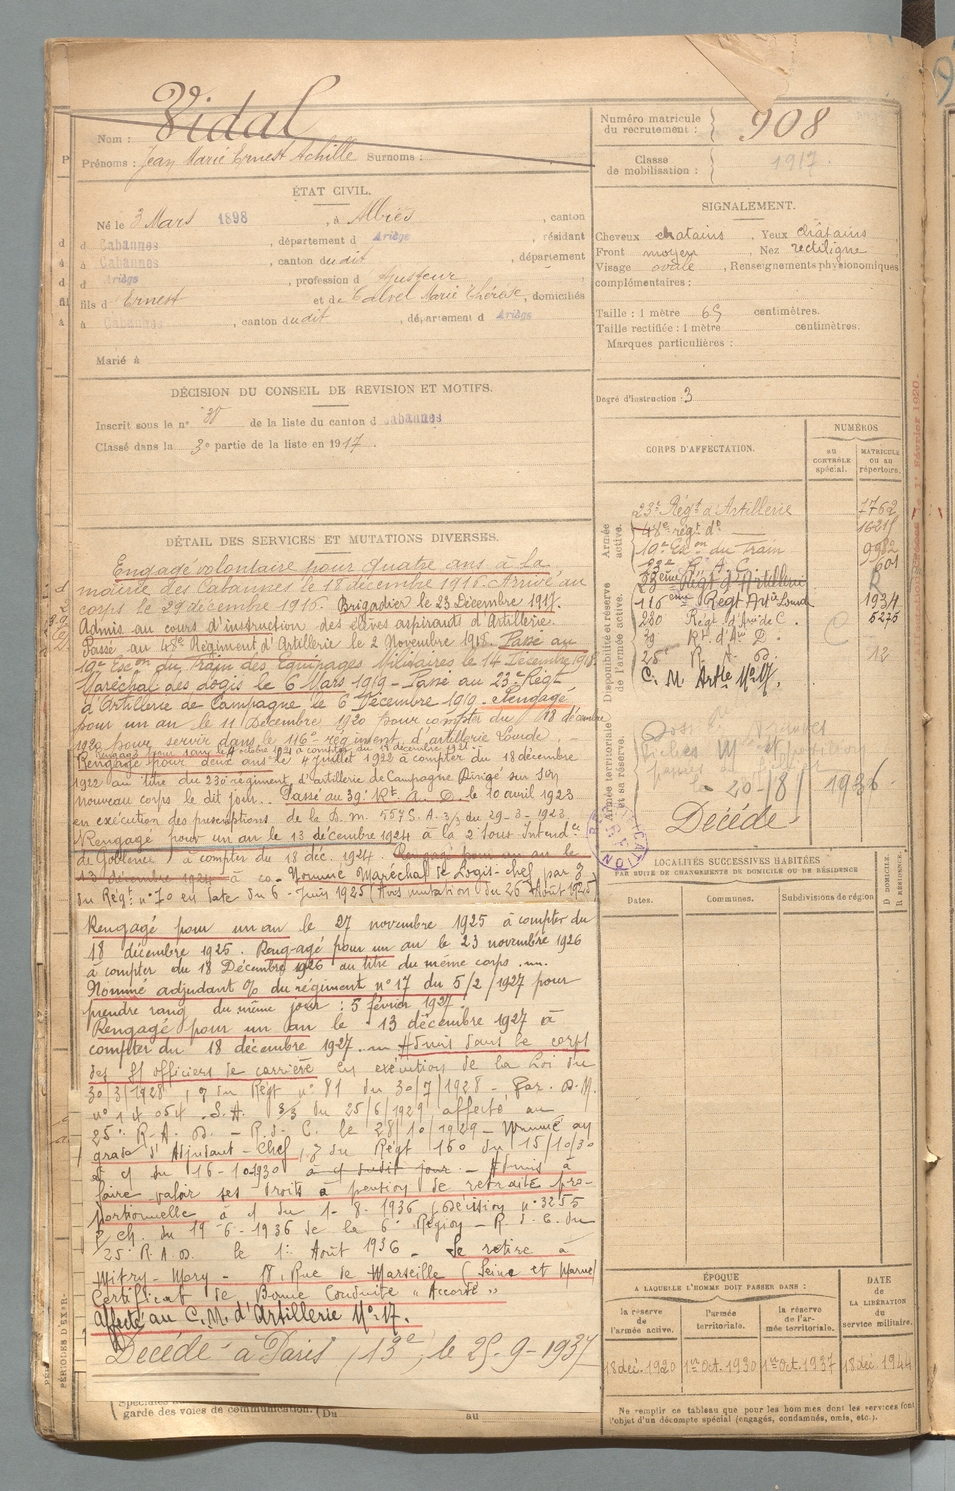 Nom : Vidal
Prénoms : Jean Marie Ernest Achille Surnoms :
ÉTAT CIVIL.
Né le 3 Mars 1898, à Albiès, canton
d Cabannes, département d Ariège, résidant
à Cabannes, canton dudit, département
d Ariège, profession d
fils d Ernest et de Calvel Marie Thérèse, domiciliés
à Cabannes, canton dudit, département d Ariège
Marié à
DÉCISION DU CONSEIL DE REVISION ET MOTIFS.
Inscrit sous le n° de la liste du canton d Cabannes
Classé dans la 3e partie de la liste en 1917.
DÉTAIL DES SERVICES ET MUTATIONS DIVERSES.
Engagé volontaire pour Quatre ans à la
mairie des Cabannes le 18 décembre 1916. Arrivé au
corps le 29 décembre 1916. Brigadier le 23 Décembre 1917.
Admis au cours d'instruction des élèves aspirants d'Artillerie.
Passé au 48e Régiment d'Artillerie le 2 Novembre 1918. Passé au
19e Escon du Train des Equipages Militaires le 14 Décembre 1918.
Maréchal des Logis le 6 Mars 1919 - Passé au 23e Régt
d'Artillerie de Campagne le 6 Décembre 1919. Rengagé
pour un an le 11 Décembre 1920 pour compter du 18 décembre
1920 pour servir dans le 116e régiment d'artillerie Lourde.
Rengagé pour 1 an le octobre 1921 à compter du 18 décembre 1921.
Rengagé pour deux ans le 4 juillet 1922 à compter du 18 décembre
1922 au titre du 230 régiment d'artillerie de Campagne Dirigé sur son
nouveau corps le dit jour. Passé au 39e Rt. A. D. le 10 avril 1923
en exécution des prescriptions de la D. m. 557 S. A. 3/3 du 29-3-1923.
Rengagé pour un an le 13 décembre 1924 à la 2e Sous Intendce
de Coblence à compter du 18 déc. 1924. Rengagé pour un an le
13 décembre 1924 à co Nommé Maréchal de Logis-chef par
du Régt n° 70 en date du 6 Juin 1925 (Avis mutation du 26 Août 1925)
Rengagé pour un an le 27 novembre 1925 à compter du
18 décembre 1925. Rengagé pour un an le 23 novembre 1926
à compter du 18 Décembre 1926 au titre du même corps.
Nommé adjudant du régiment n° 17 du 5/2/1927 pour
prendre rang du même jour : 5 février 1927.
Rengagé pour un an le 13 décembre 1927 à
compter du 18 décembre 1927. Admis dans le corps
des S/ officiers de carrière en exécution de la Loi du
30/3/1928, du Régt n° 81 du 30/7/1928 - Par D. M.
n° 14 054 S.A. 3/3 du 25/6/1929 affecté au
25e R. A. D. - R. d. C. le 28/10/1929 - Nommé au
grade d'Adjudant-Chef, du Régt 160 du 15/10/30
du 16-10-1930 à dudit jour - Admis à
faire valoir ses droits à pension de retraite pro-
portionnelle à du 1-8-1936 (décision n° 3255
ch. du 19-6-1936 de la 6e Région - R. d. C. du
25e R.A.D. le 1er Août 1936 - Se retire à
Mitry-Mory - 18, Rue de Marseille (Seine et Marne)
Certificat de Bonne Conduite « Accordé »
Affecté au C. M. d'Artillerie N° 17.
Décédé à Paris (13e), le 25-9-1937
garde des voies de communication. (Du au
Numéro matricule du recrutement : 908
Classe de mobilisation : 1917
SIGNALEMENT.
Cheveux chatains, Yeux châtains
Front moyen, Nez rectiligne
Visage ovale, Renseignements physionomiques
complémentaires :
Taille : 1 mètre 65 centimètres.
Taille rectifiée : 1 mètre centimètres.
Marques particulières :
Degré d'instruction : 3
CORPS D'AFFECTATION.
NUMÉROS
au contrôle spécial.
MATRICULE ou au répertoire.
Armée active.
Disponibilité et réserve de l'armée active.
Armée territoriale et sa réserve.
23e Régt d'Artillerie 1762
48e régt do
19e Eson du Train
23ème Régt d'Artillerie
116ème Régt Arie Lourde 1934
230 Régt d'Arie de C. 5275
39 Rt. d'Arie D.
25e R. A. D. 12
C. M. Artie N° 17.
le 20-8-1936
Décédé
LOCALITÉS SUCCESSIVES HABITÉES
PAR SUITE DE CHANGEMENTS DE DOMICILE OU DE RÉSIDENCE
Dates.
Communes.
Subdivisions de région
D DOMICILE.
R RÉSIDENCE.
ÉPOQUE
A LAQUELLE L'HOMME DOIT PASSER DANS :
la réserve de l'armée active.
l'armée territoriale.
la réserve de l'armée territoriale.
DATE DE LA LIBÉRATION du service militaire.
18 déc. 1920 1er Oct. 1930 1er Oct. 1937 18 déc. 1944
Ne remplir ce tableau que pour les hommes dont les services font
l'objet d'un décompte spécial (engagés, condamnés, omis, etc.).